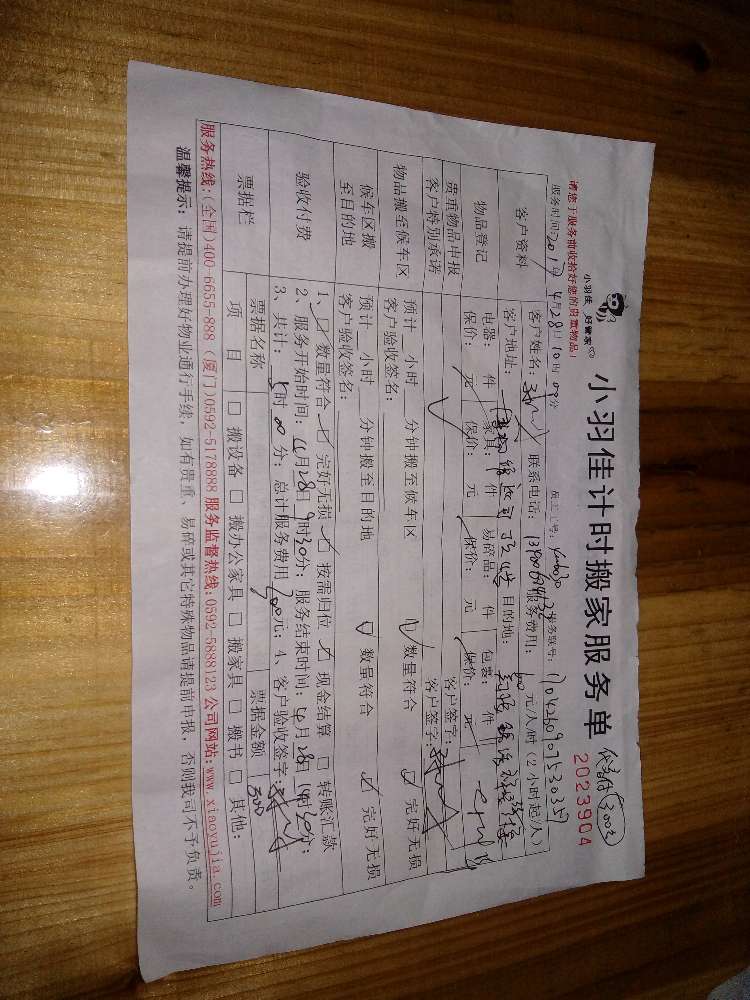 小羽佳 好管家
小羽佳计时搬家服务单
3003
2023904
请您于服务前收拾好您的贵重物品!
服务时间: 2017年4月28日10时00分 员工工号: 服务账号:
客户资料
客户姓名: 联系电话: 服务费用: 元/人/时(2小时起/人)
客户地址: 目的地:
物品登记
电器: 件 家具: 件 易碎品: 件 包裹: 件
保价: 元 保价: 元 保价: 元 保价: 元
贵重物品申报
客户特别承诺
客户签字:
客户签字:
物品搬至候车区
预计 小时 分钟搬至候车区 数量符合 完好无损
客户验收签名:
候车区搬
至目的地
预计 小时 分钟搬至目的地 数量符合 完好无损
客户验收签名:
验收付费
1、 数量符合 完好无损 按需归位 现金结算 □ 转账汇款
2、服务开始时间: 4月28日9时30分; 服务结束时间: 4月28日14时30分;
3、共计: 5时00分; 总计服务费用 元; 4、客户验收签字:
票据栏
票据名称 票据金额 300
项 目 □ 搬设备 □ 搬办公家具 □ 搬家具 □ 搬书 □ 其他:
服务热线: (全国)400-6655-888 (厦门)0592-5178888 服务监督热线: 0592-5888123 公司网站: www.xiaoyujia.com
温馨提示: 请提前办理好物业通行手续, 如有贵重、易碎或其它特殊物品请提前申报, 否则我司不予负责。